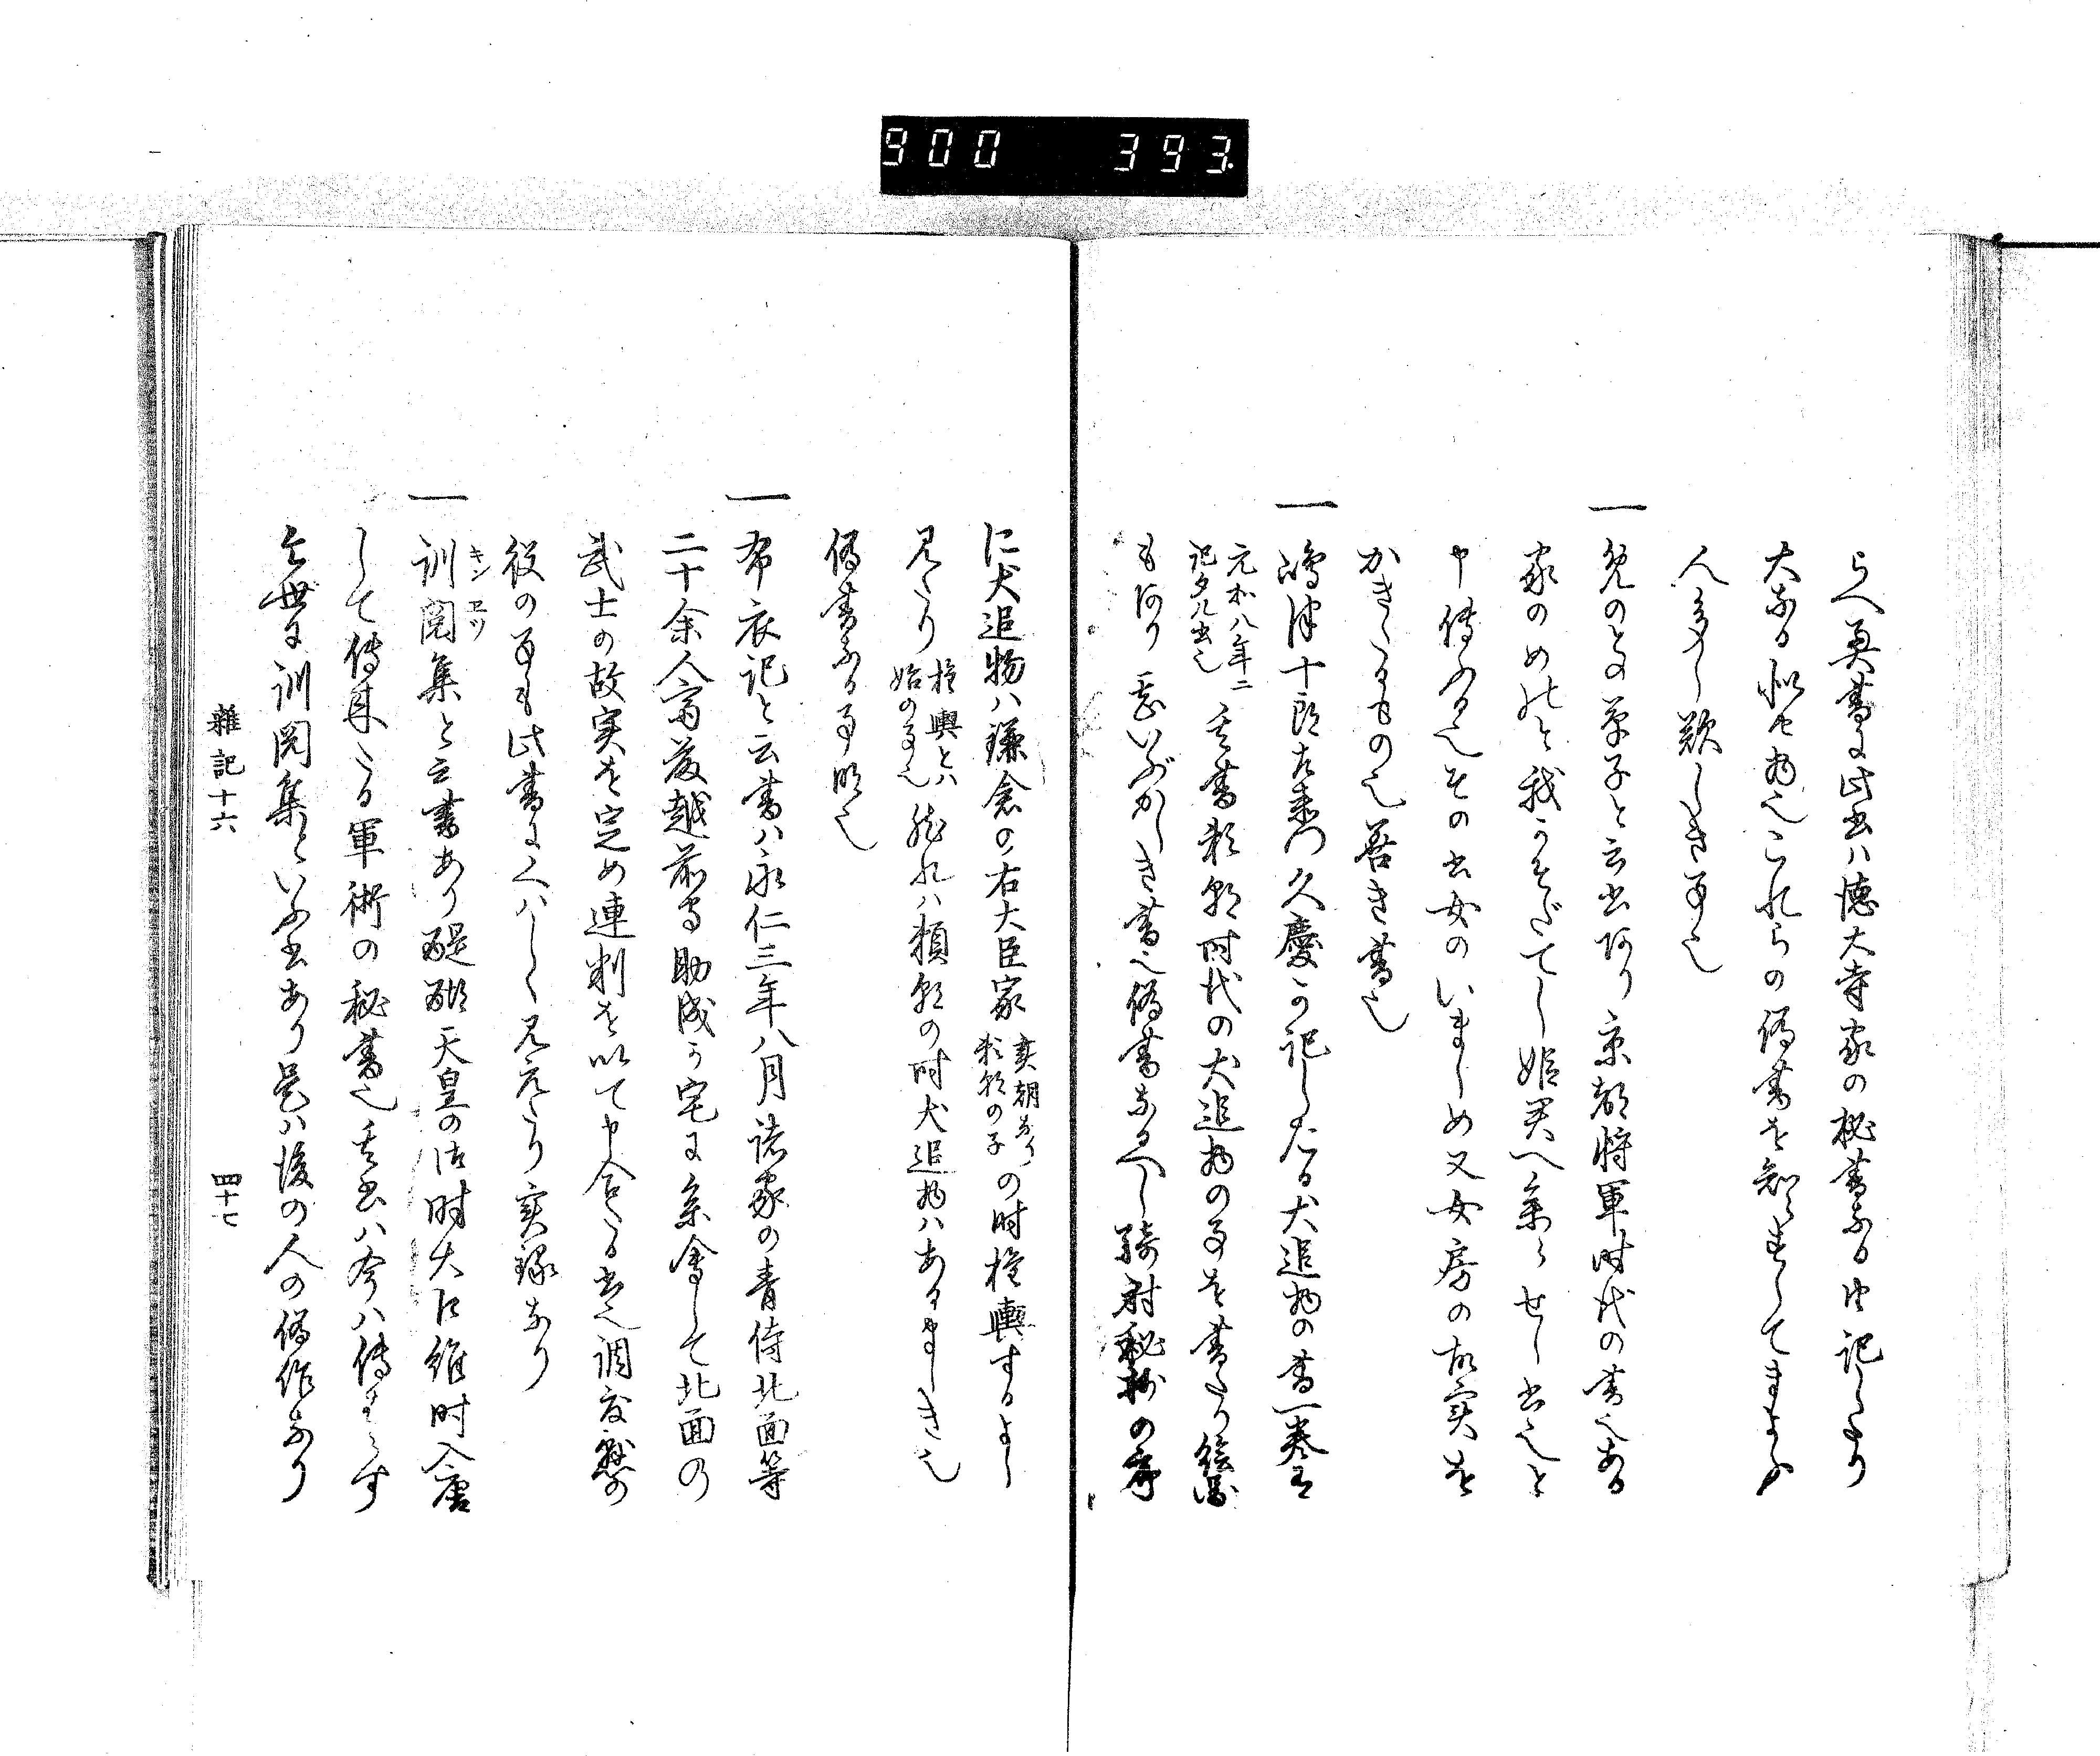 900 393
らへ奥書に此書ハ徳大寺家の秘書なる由記したり
大なる似せ物也これらの偽書を知らすしてまよふ
人多し歎しき事也
一 めのとの草子と云書あり京都将軍時代の書也ある
家のめのと我そだてし姫君へ参らせし書也と
申傳ふる也その書女のいましめ又女房の故実を
かきたるもの也善き書也
一 嶋津十郎左衛門久慶か記したる犬追物の書一巻有
元和八年ニ記タル書也 其書頼朝時代の犬追物の事を書たり絵図
もあり甚いぶかしき書也偽書なるへし騎射秘抄の序
に犬追物ハ鎌倉の右大臣家 実朝なり頼朝の子 の時権輿するよし
見たり 権輿とハ始の事也 然れハ頼朝の時犬追物ハあるましき也
偽書なる事明也
一 布衣記と云書ハ永仁三年八月諸家の青侍北面等
二十余人齋藤越前守助成か宅に参會して北面の
武士の故実を定め連判を以て申合たる書也調度懸の
役の事も此書にくハしく見えたり実録なり
一 訓閲集と云書あり醍醐天皇の御時大江維時入唐
キンヱツ
して傳来たる軍術の秘書也其書ハ今ハ傳ハらす
今世に訓閲集といふ書あり是ハ後の人の偽作なり
雜記十六
四十七